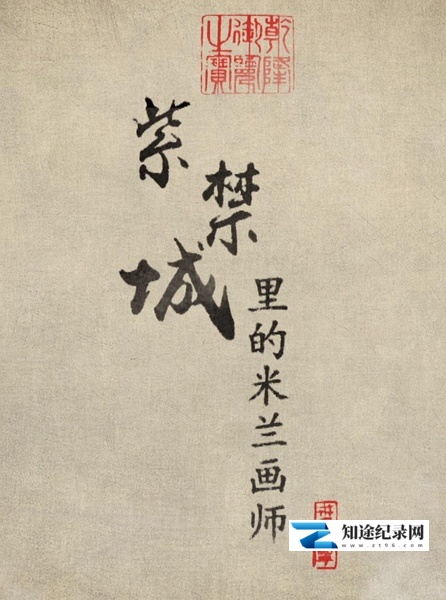 乾隆
御覽
之寶
紫禁城
里的米兰画师
知途纪录网
www.zt96.com